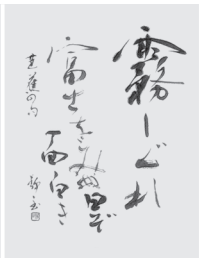 霧しぐれ
富士をみぬ日ぞ
面白き
芭蕉の句